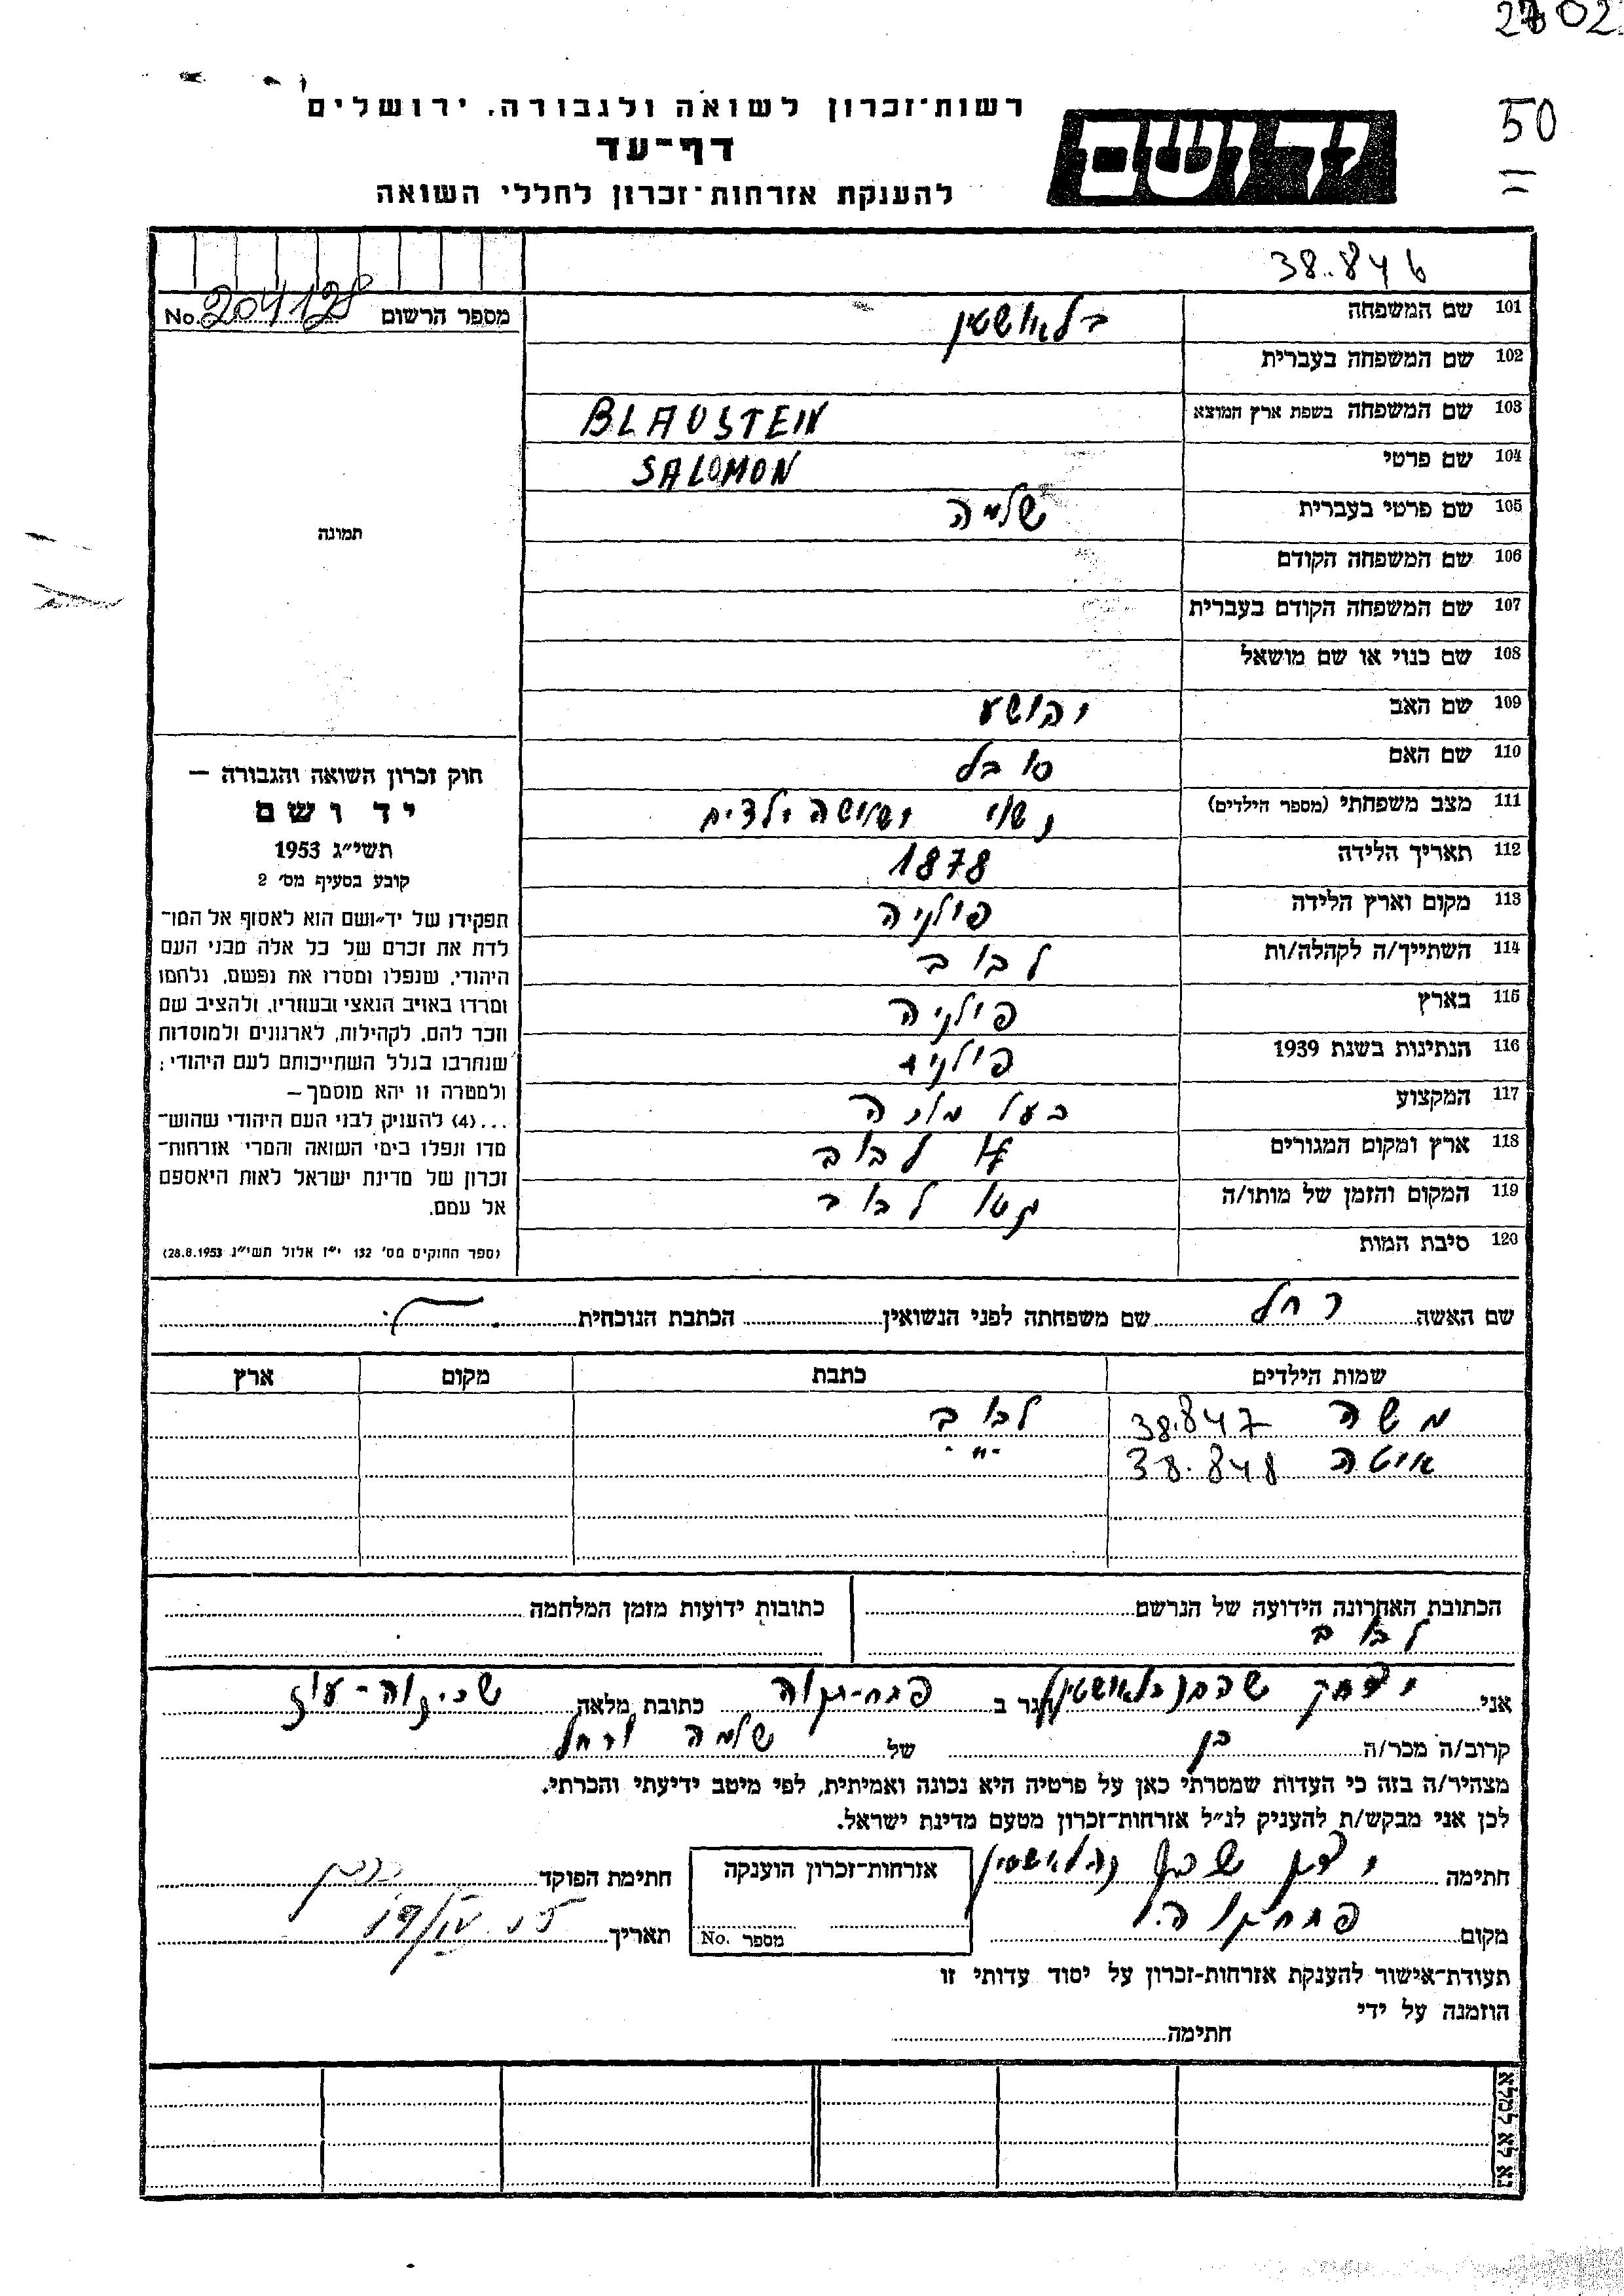 50
רשות־זכרון לשואה ולגבורה, ירושלים
יד ושם
דף־עד
להענקת אזרחות־זכרון לחללי השואה
38.846
מספר הרשום No. 204128
101 שם המשפחה בלאושטין
102 שם המשפחה בעברית
103 שם המשפחה בשפת ארץ המוצא BLAUSTEIN
104 שם פרטי SALOMON
105 שם פרטי בעברית שלמה
106 שם המשפחה הקודם
107 שם המשפחה הקודם בעברית
108 שם כנוי או שם מושאל
109 שם האב יהושע
110 שם האם
111 מצב משפחתי (מספר הילדים) נשוי ושישה ילדים
112 תאריך הלידה 1878
113 מקום וארץ הלידה פולניה
114 השתייך/ה לקהלה/ות לבוב
115 בארץ פולניה
116 הנתינות בשנת 1939 פולניה
117 המקצוע בעל
118 ארץ ומקום המגורים לבוב
119 המקום והזמן של מותו/ה גטו לבוב
120 סיבת המות
תמונה
חוק זכרון השואה והגבורה —
יד ושם
תשי״ג 1953
קובע בסעיף מס׳ 2
תפקידו של יד־ושם הוא לאסוף אל המו־
לדת את זכרם של כל אלה מבני העם
היהודי, שנפלו ומסרו את נפשם, נלחמו
ומרדו באויב הנאצי ובעוזריו, ולהציב שם
וזכר להם, לקהילות, לארגונים ולמוסדות
שנחרבו בגלל השתייכותם לעם היהודי;
ולמטרה זו יהא מוסמך —
...(4) להעניק לבני העם היהודי שהוש־
מדו ונפלו בימי השואה והמרי אזרחות־
זכרון של מדינת ישראל לאות היאספם
אל עמם.
(ספר החוקים מס׳ 132 י״ז אלול תשי״ג 28.8.1953)
שם האשה רחל שם משפחתה לפני הנשואין הכתבת הנוכחית
שמות הילדים כתבת מקום ארץ
משה 38.847 לבוב
איטה 38.848 -"-
הכתובת האחרונה הידועה של הנרשם כתובות ידועות מזמן המלחמה
לבוב
אני יצחק בלאושטין הגר ב פתח-תקוה כתובת מלאה
קרוב/ה מכר/ה בן של שלמה ורחל
מצהיר/ה בזה כי העדות שמסרתי כאן על פרטיה היא נכונה ואמיתית, לפי מיטב ידיעתי והכרתי.
לכן אני מבקש/ת להעניק לנ״ל אזרחות־זכרון מטעם מדינת ישראל.
חתימה אזרחות־זכרון הוענקה חתימת הפוקד
מקום מספר No. תאריך
תעודת־אישור להענקת אזרחות־זכרון על יסוד עדותי זו
הוזמנה על ידי
חתימה
נא לא למלא